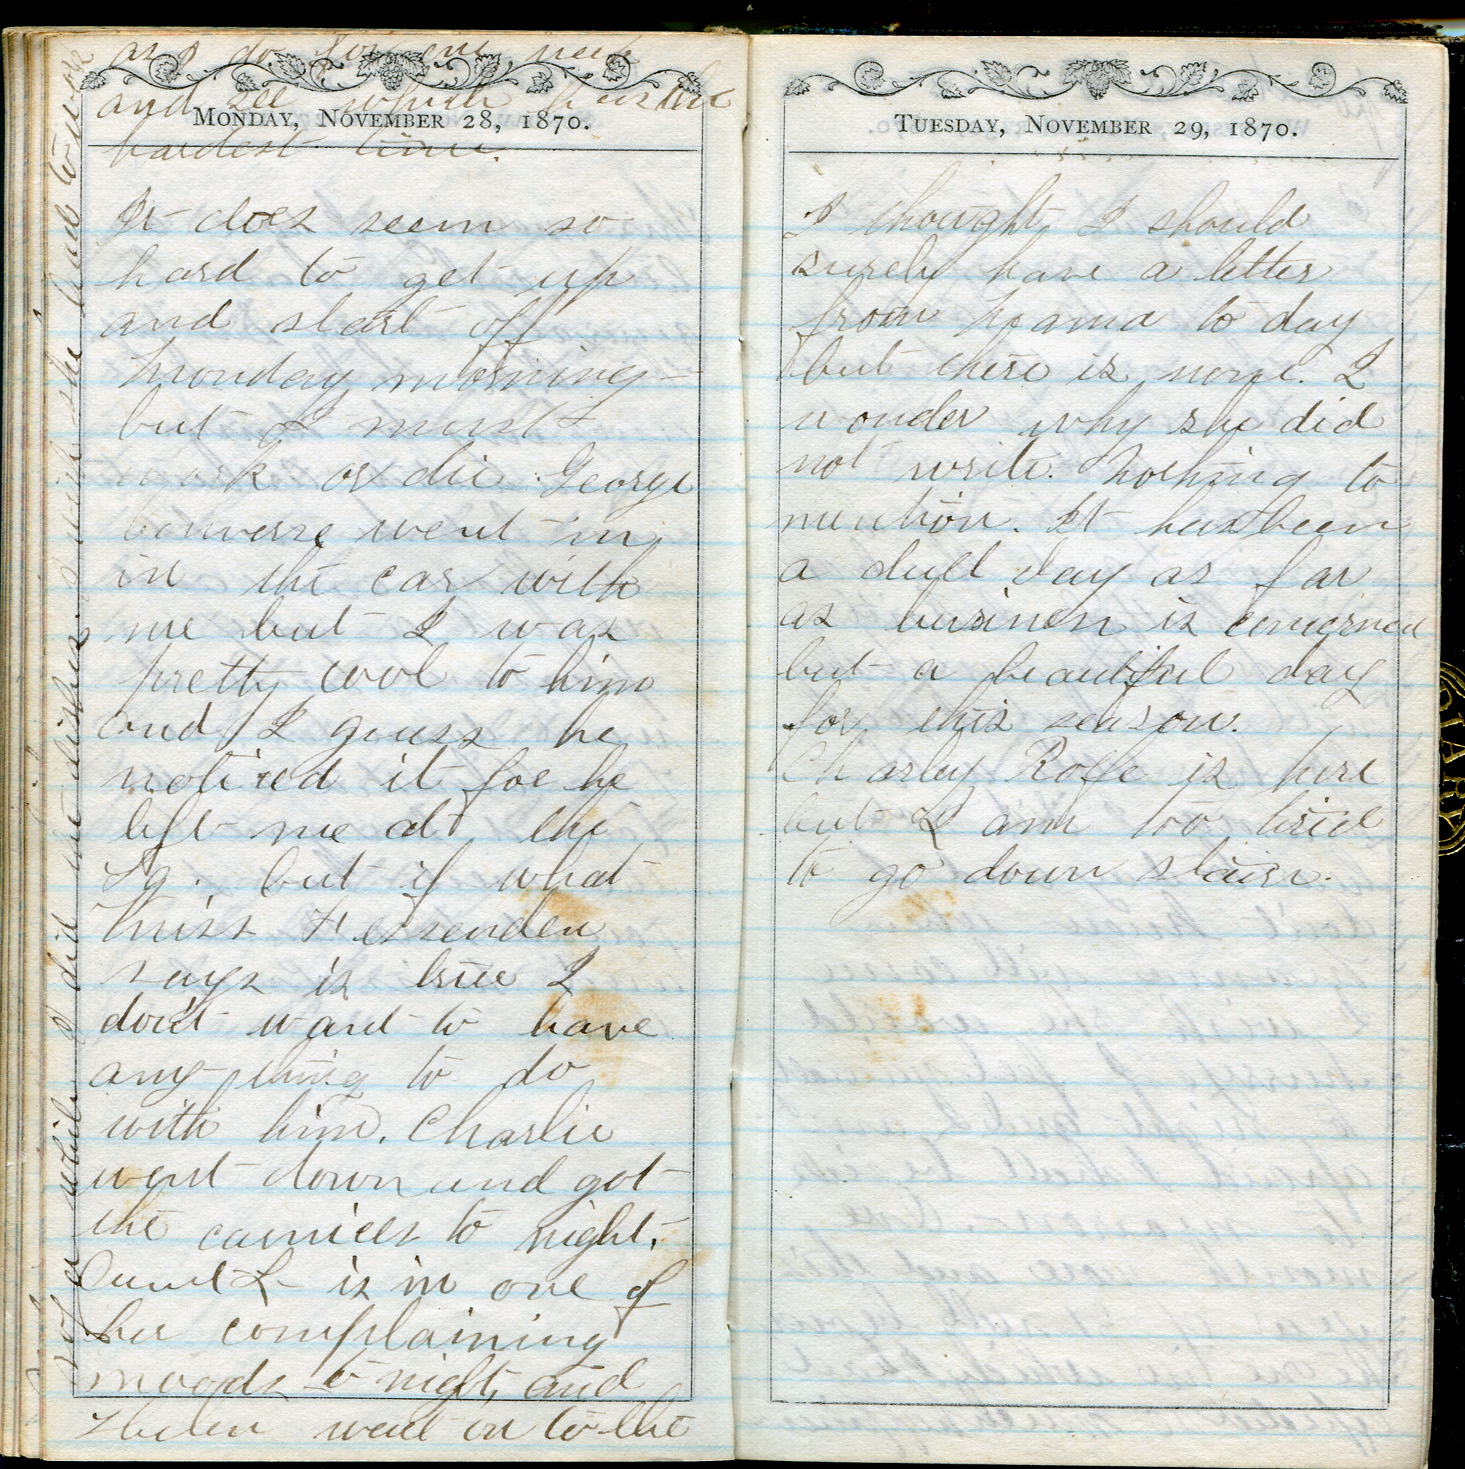 as I do for one week
and see which has the
MONDAY, NOVEMBER 28, 1870.
hardest time.
It does seem so
hard to get up
and start off
Monday morning
but I must
work or die George
Converse went in
in the car with
me but I was
pretty cool to him
and I guess he
noticed it for he
left me at the
Sq. but if what
Miss Fessenden
says is true I
don't want to have
any thing to do
with him. Charlie
went down and got
the cornices to night.
Aunt L is in one of
her complaining
moods to night, and
Helen went in to the
while I did the dishes. I wish she had to work
TUESDAY, NOVEMBER 29, 1870.
I thought I should
surely have a letter
from Mama to day
but there is none. I
wonder why she did
not write. Nothing to
mention. It has been
a dull day as far
as business is concerned
but a beautiful day
for this season.
Charley Rolfe is here
but I am too tired
to go down stairs.
DIARY